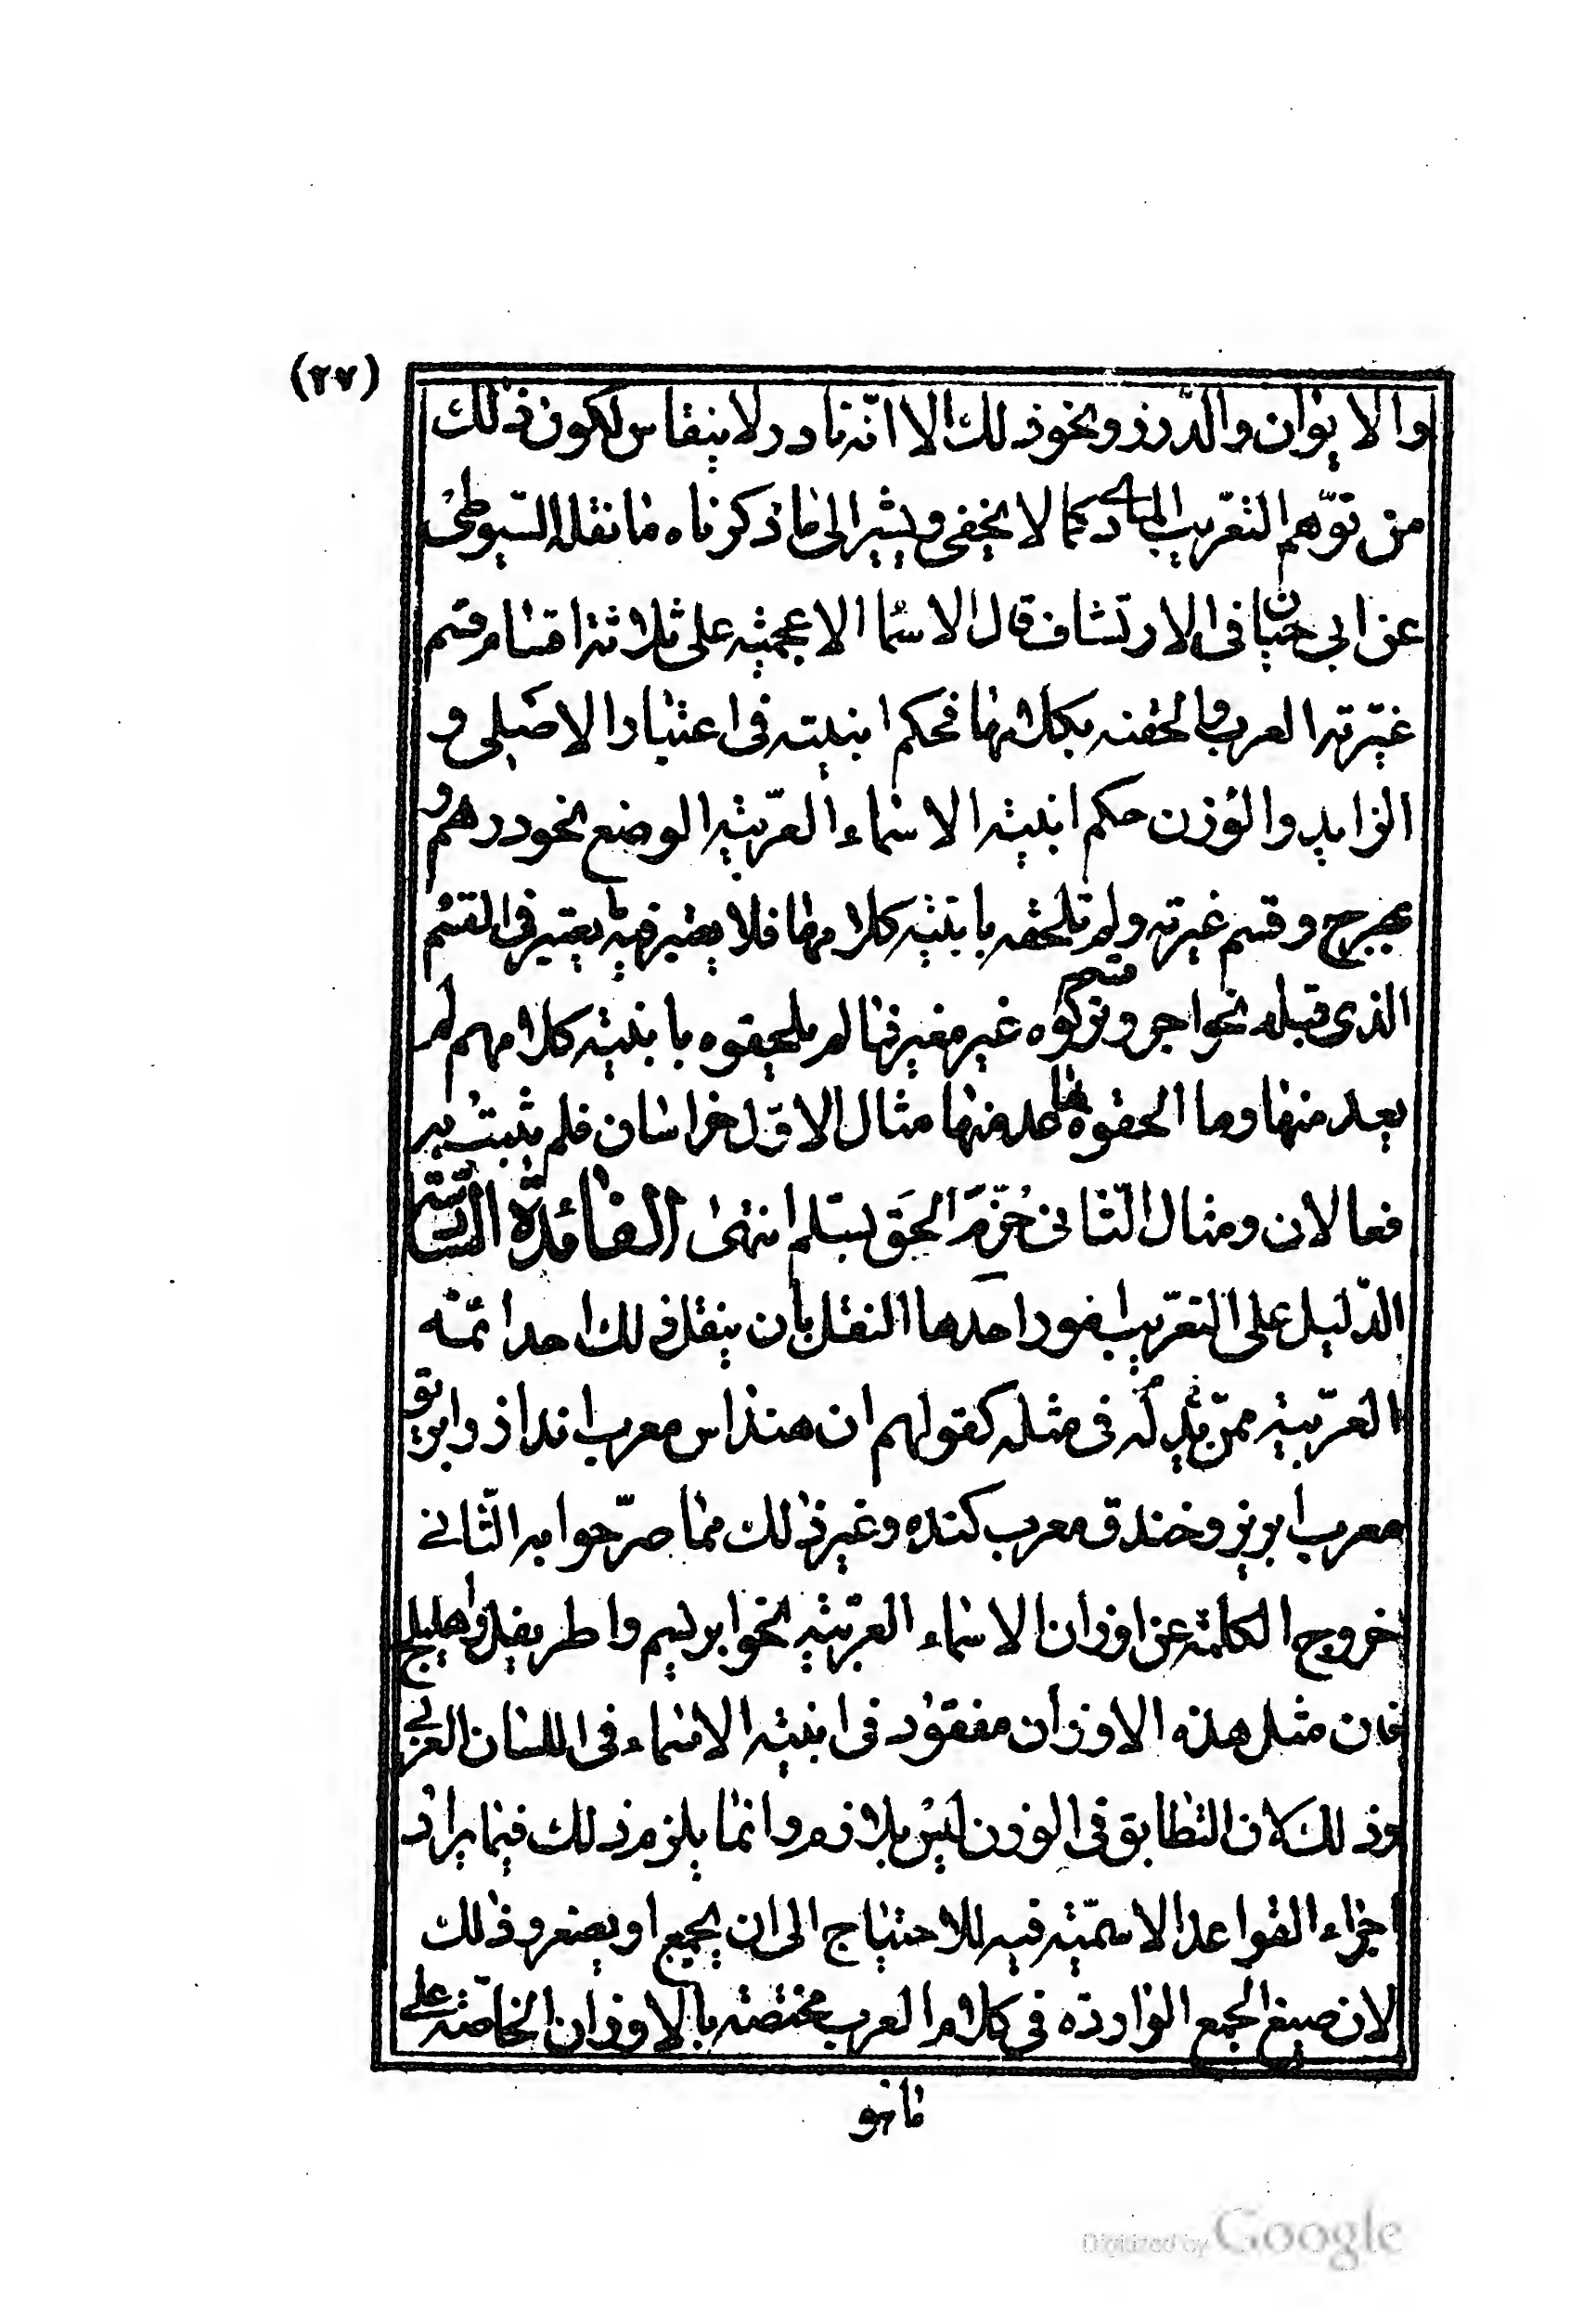 (٢٧)
والايوان والدّرز ونحو ذلك الا انّه نادر لا ينقاس لكون ذلك
من توّهم التعريب كما لا يخفى ويشير الى ما ذكرناه ما نقله السّيوطى
عن ابى حيّان فى الارتشاف قال الاسماء الاعجميّه على ثلاثة اقسام قسم
غيّرته العرب والحقته بكلامها فحكم ابنيته فى اعتبار الاصلى و
الزايد والوزن حكم ابنيه الاسماء العربيّه الوضع نحو درهم و
بهرج وقسم غيرته ولم تلحقه بابنيه كلامها فلا يعتبر فيه ما يعتبر فى القسم
الذى قبله نحو اجر وقسم تركوه غير مغير فما لم يلحقوه بابنيه كلامهم لم
يعد منها وما الحقوه بها عد منها مثال الاوّل خراسان فلم يثبت به
فعالان ومثال الثّانى خُرّم الحق بسلّم انتهى الفائدة السّادسة
الدّليل على التعريب امور احدها النقل بأن ينقل ذلك احد ائمّه
العربيّه ممّن يدله فى مثله كقولهم ان هنداس معرب انداز وابريق
معرب ابريز وخندق معرب كنده وغير ذلك مما صرّحوا به الثّانى
خروج الكلمة عن اوزان الاسماء العربيّه نحو ابريسم واطريفل واهليلج
فان مثل هذه الاوزان مفقود فى ابنيه الاسماء فى اللسان العربى
وذلك لان التطابق فى الوزن ليس بلازم وانما يلزم ذلك فيما يراد
اجراء القواعد الاسميّه فيه للاحتياج الى ان يجمع او يصغر وذلك
لان صيغ الجمع الوارده فى كلام العرب مختصه بالاوزان الخاصّه على
ما هو
Digitized by Google